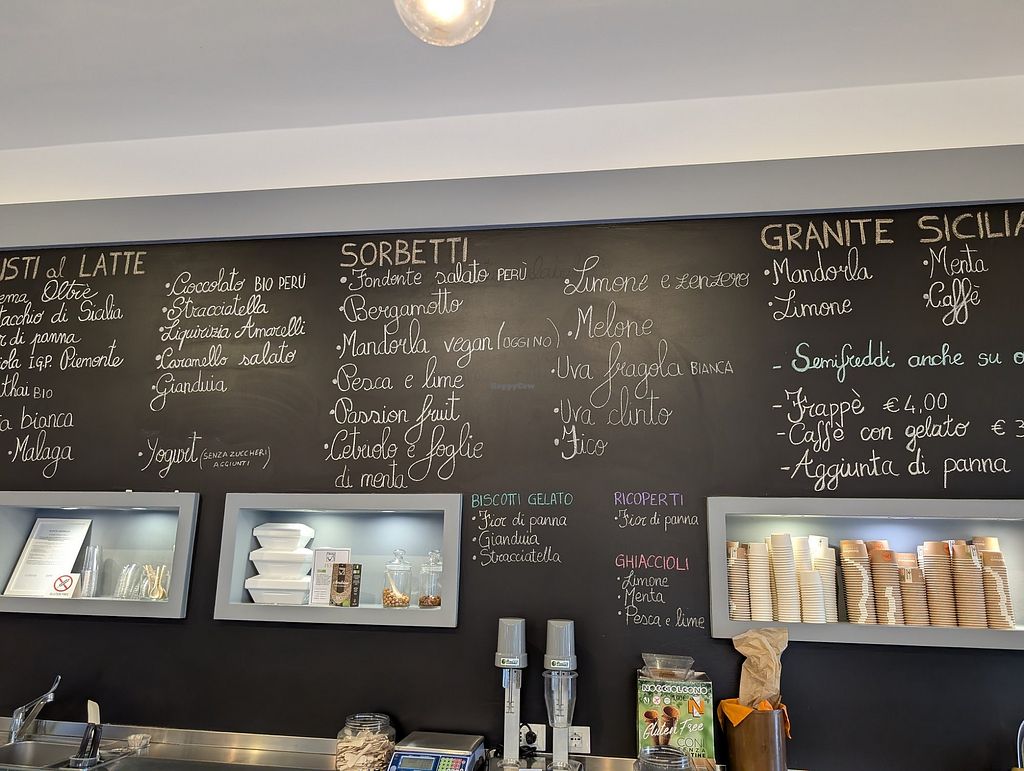 USTI al LATTE
ema Oltrè
tacchio di Sicilia
r di panna
iola I.G.P. Piemonte
thai BIO
a bianca
• Malaga
• Cioccolato BIO PERÙ
• Stracciatella
• Liquirizia Amarelli
• Caramello salato
• Gianduia
• Yogurt (SENZA ZUCCHERI AGGIUNTI)
SORBETTI
• Fondente salato PERÙ
• Bergamotto
• Mandorla vegan (OGGI NO)
• Pesca e lime
• Passion fruit
• Cetriolo e foglie
di menta
• Limone e zenzero
• Melone
• Uva fragola BIANCA
• Uva clinto
• Fico
GRANITE SICILIA
• Mandorla
• Limone
• Menta
• Caffè
- Semifreddi anche su o
- Frappè €4,00
- Caffè con gelato €3
- Aggiunta di panna
BISCOTTI GELATO
• Fior di panna
• Gianduia
• Stracciatella
RICOPERTI
• Fior di panna
GHIACCIOLI
• Limone
• Menta
• Pesca e lime
HappyCow
NOCCIOLCONO
Gluten Free
CON